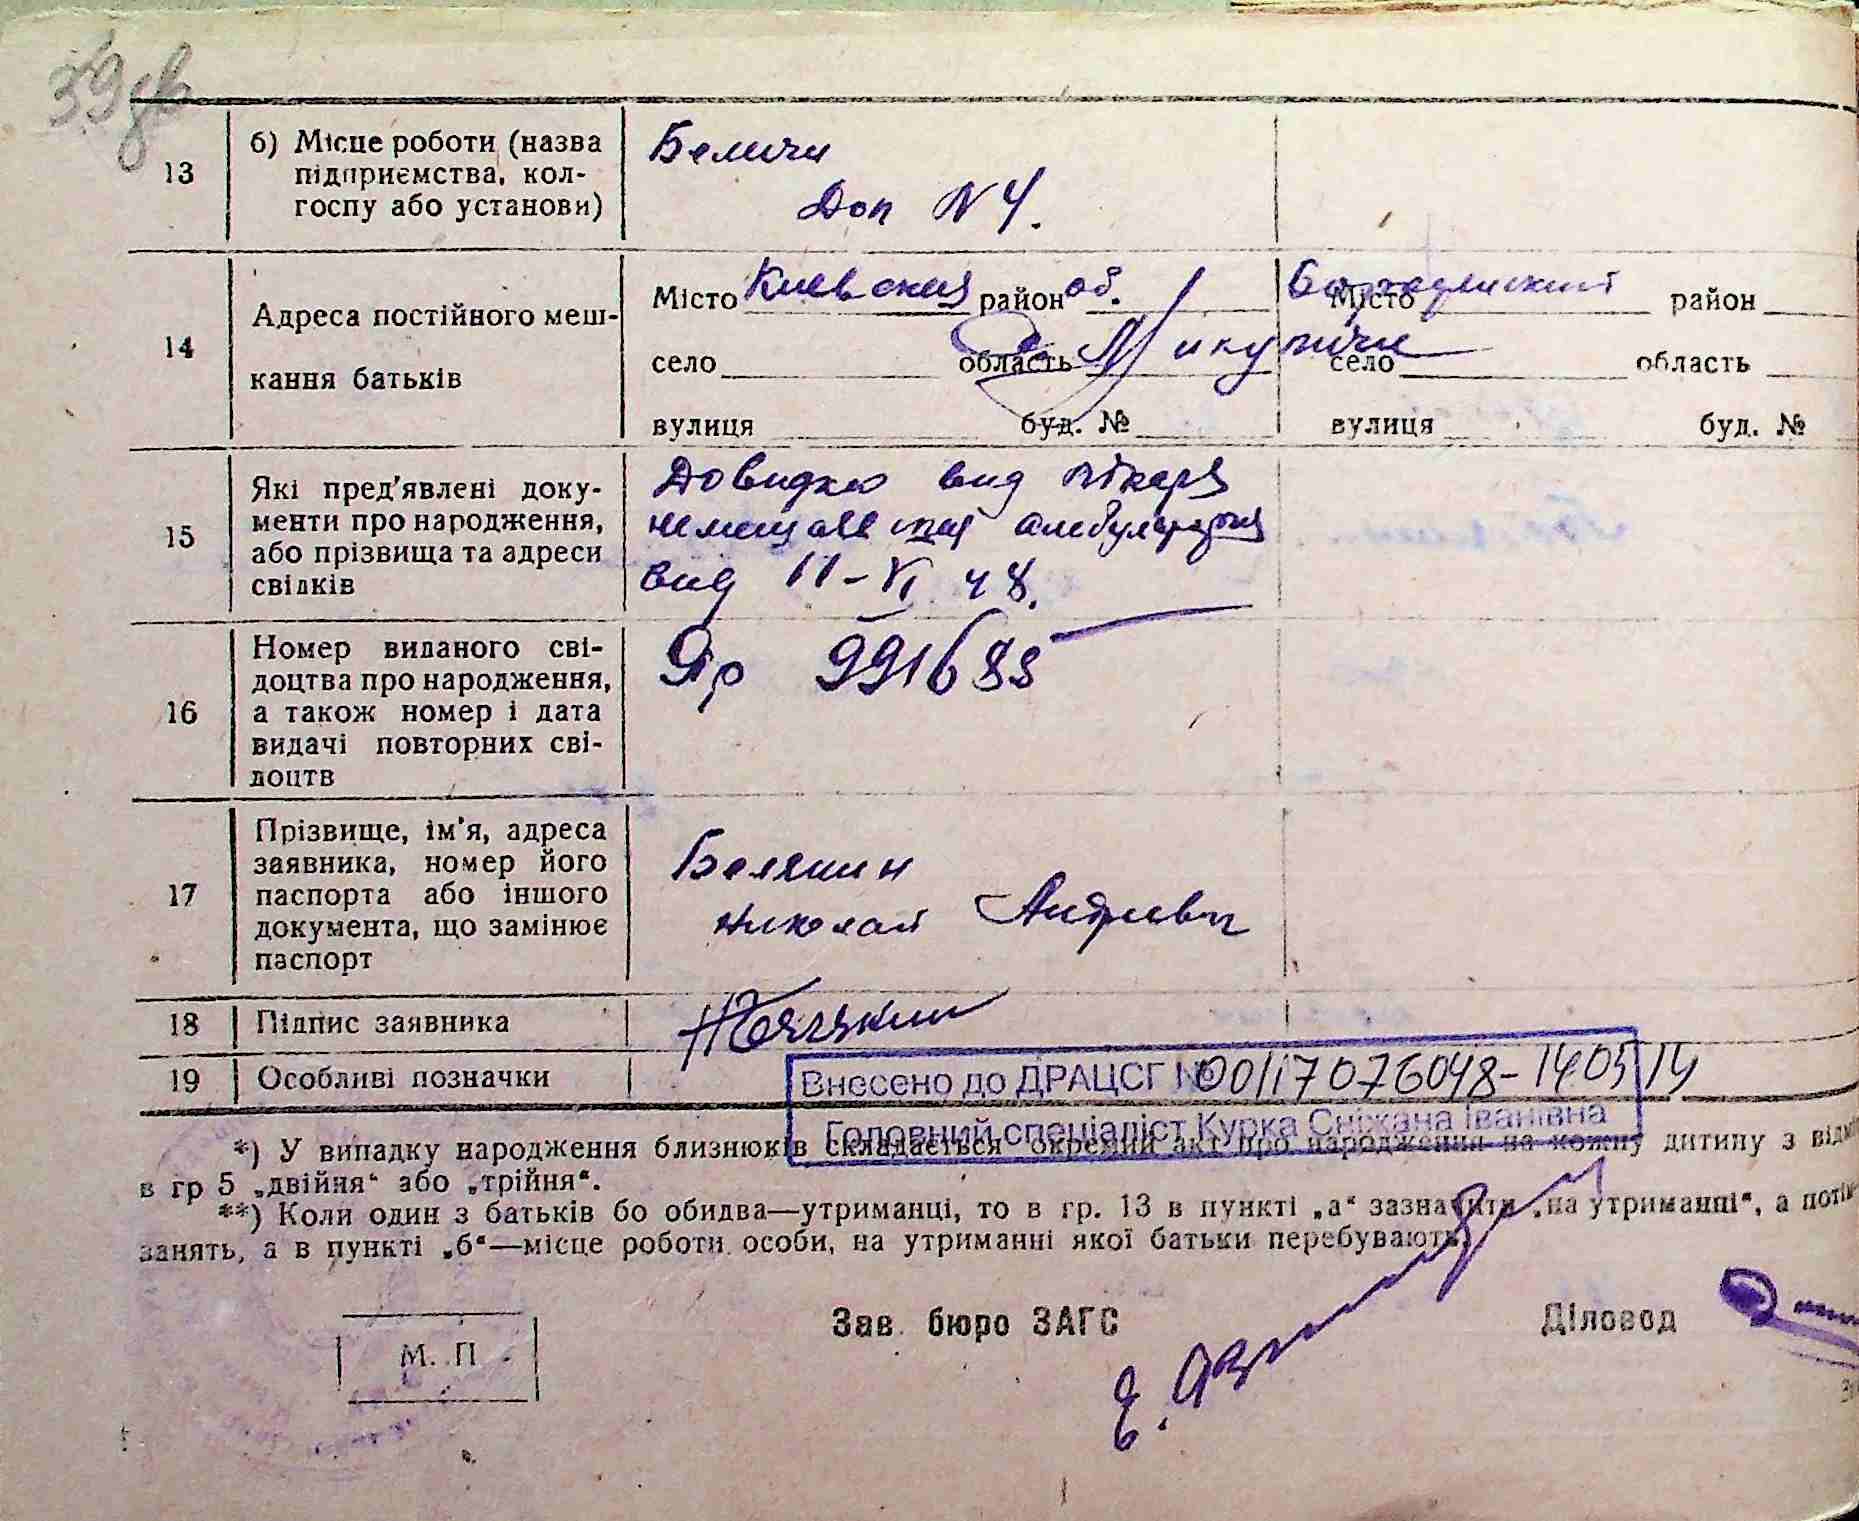 39 зв
13
б) Місце роботи (назва
підприємства, кол-
госпу або установи)
Беличи
Доп N 4.
14
Адреса постійного меш-
кання батьків
Місто Киевская район об.
село область Микуличи
вулиця буд. №
Місто район
село область
вулиця буд. №
15
Які пред'явлені доку-
менти про народження,
або прізвища та адреси
свідків
Довидкю вид лікаря
немешаевская амбулатория
вид 11-VI 48.
16
Номер виданого сві-
доцтва про народження,
а також номер і дата
видачі повторних сві-
доцтв
Яр 991688
17
Прізвище, ім'я, адреса
заявника, номер його
паспорта або іншого
документа, що замінює
паспорт
Николай
18
Підпис заявника
19
Особливі позначки
Внесено до ДРАЦСГ № 00117076048-14.05 14
Головний спеціаліст Курка Сніжана Іванівна
*) У випадку народження близнюків складається окремий акт про народження на кожну дитину з
в гр 5 „двійня“ або „трійня“.
**) Коли один з батьків бо обидва—утриманці, то в гр. 13 в пункті „а“ зазначити „на утриманні“, а
занять, а в пункті „б“—місце роботи особи, на утриманні якої батьки перебувають.
М. П.
Зав. бюро ЗАГС
Діловод